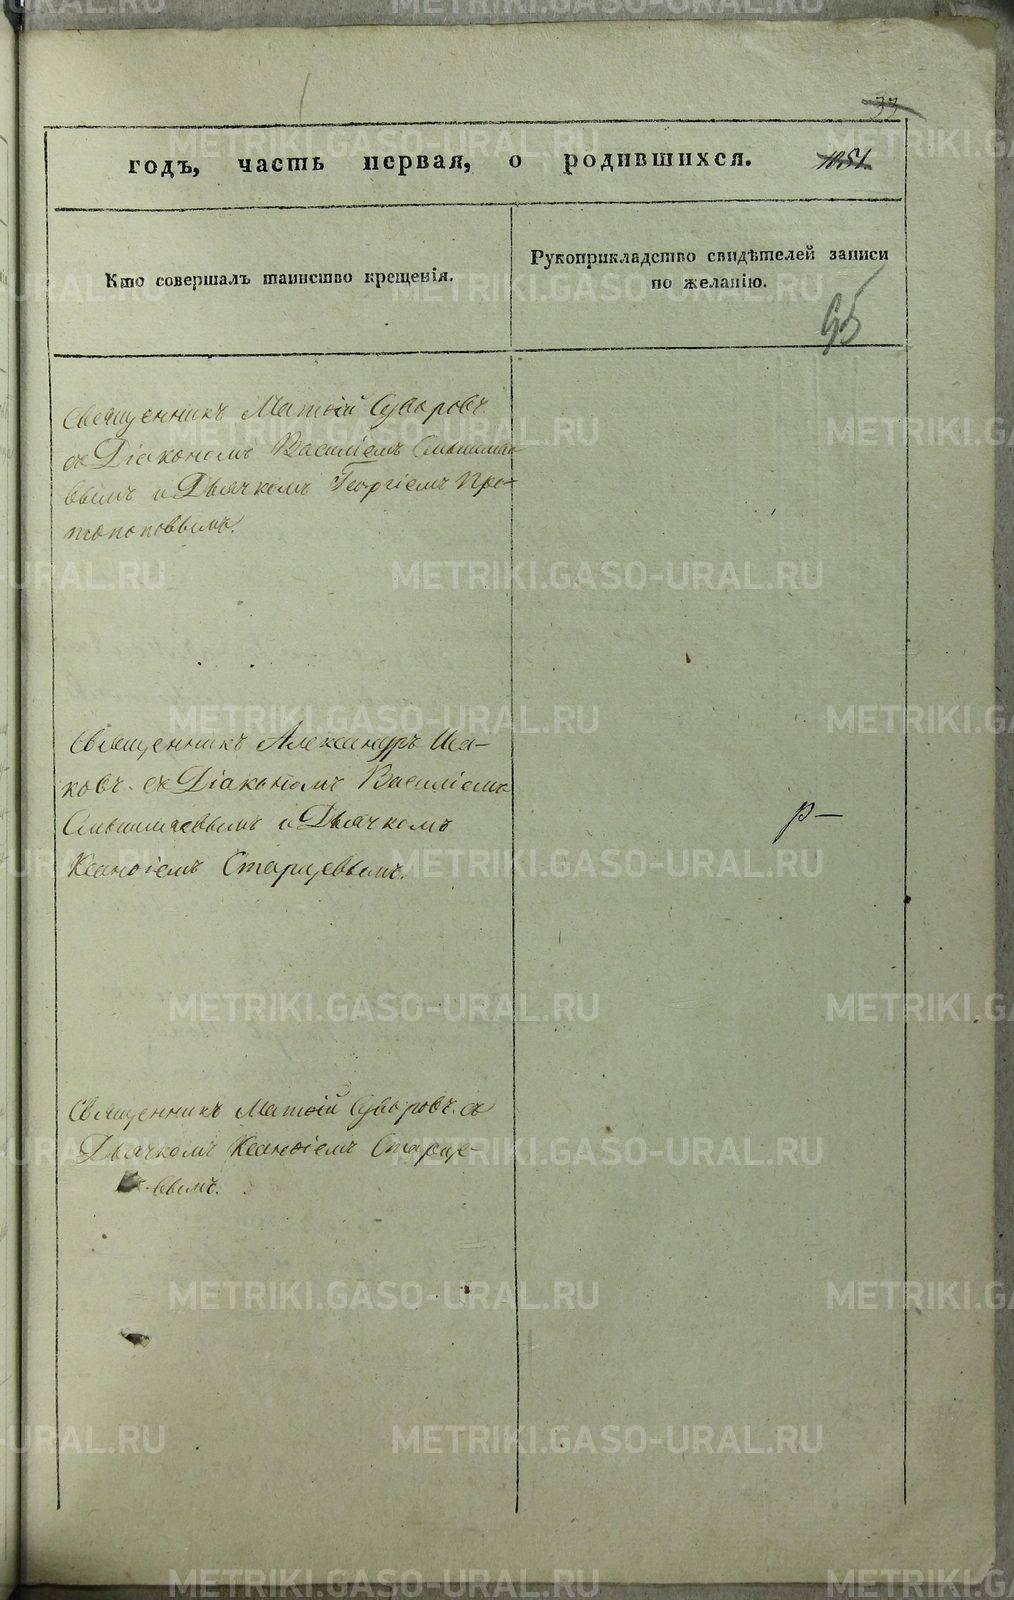 33
годъ, часть первая, о родившихся. 1051.
Кто совершалъ таинство крещенія.
Рукоприкладство свидѣтелей записи
по желанію.
95
Священникъ Матѳій Суворовъ
съ Діакономъ Василіемъ
вымъ и Дьячкомъ Георгіемъ Про-
топоповымъ.
Священникъ Александръ Иса-
ковъ съ Діакономъ Василіемъ
и Дьячкомъ
Ксанѳіемъ Старцевымъ.
р—
Священникъ Матѳій Суворовъ съ
Дьячкомъ Ксанѳіемъ Старце-
вымъ.
METRIKI.GASO-URAL.RU